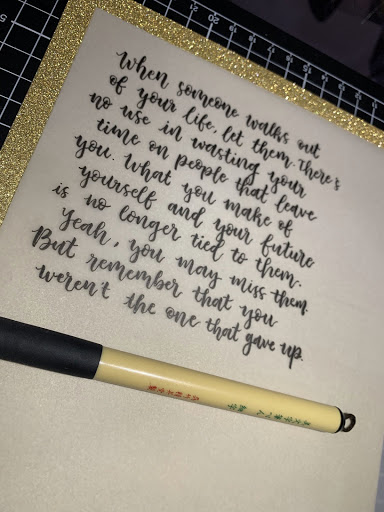 When someone walks out
of your life, let them. There's
no use in wasting your
time on people that leave
you. What you make of
yourself and your future
is no longer tied to them.
Yeah, you may miss them.
But remember that you
weren't the one that gave up.